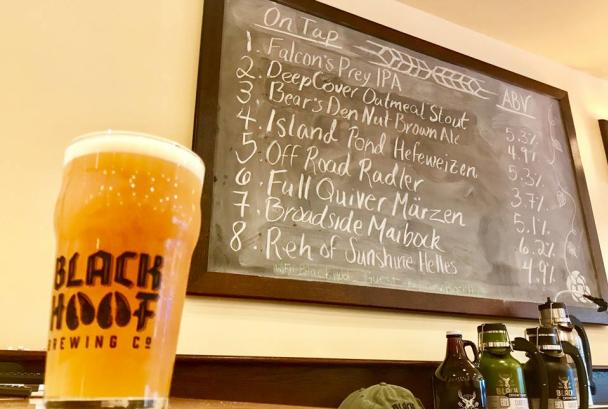 On Tap
ABV
1. Falcon's Prey IPA
2. DeepCover Oatmeal Stout 5.3%
3. Bear's Den Nut Brown Ale 4.9%
4. Island Pond Hefeweizen 5.3%
5. Off Road Radler 3.7%
6. Full Quiver Märzen 5.1%
7. Broadside Maibock 6.2%
8. Reh of Sunshine Helles 4.9%
BLACK
HOOF
BREWING CO
BLACK